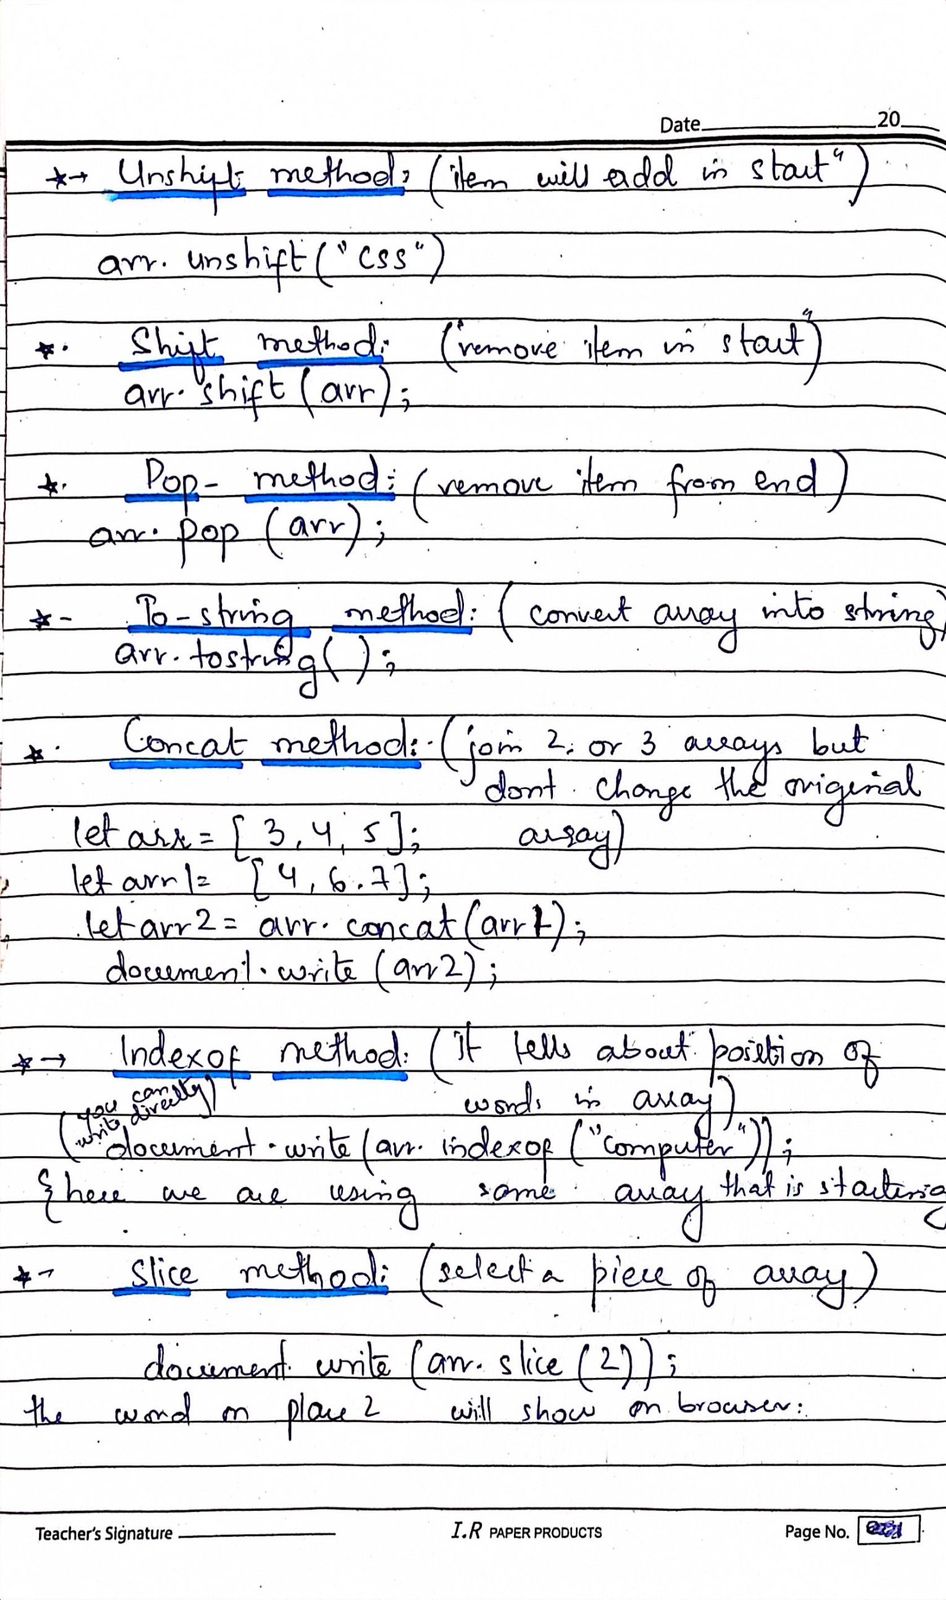 Date 20
*→ Unshift method: (item will add in start")
arr. unshift ("css")
*. Shift method: ("remove item in start")
arr. shift (arr);
*. Pop- method: (remove item from end)
arr. pop (arr);
*- To-string method: (convert array into string)
arr.tostring( );
*. Concat method:- (join 2. or 3 arrays but
dont change the origerial
let arr = [ 3, 4, 5 ]; array)
let arr1= [ 4, 6.7 ];
let arr2 = arr. concat (arr1);
document.write (arr2);
*→ Indexof method: (it tells about position of
words in array)
(you can write directly)
document.write (arr. indexof ("computer"));
{here we are using same array that is starting
*→ Slice method: (select a piece of array)
document. write (arr. slice (2));
the word on place 2 will show on browser:
Teacher's Signature I.R PAPER PRODUCTS Page No.